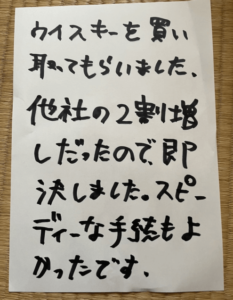 ウイスキーを買い
取ってもらいました、
他社の2割増
しだったので、即
決しました。スピー
ディーな手続もよ
かったです、